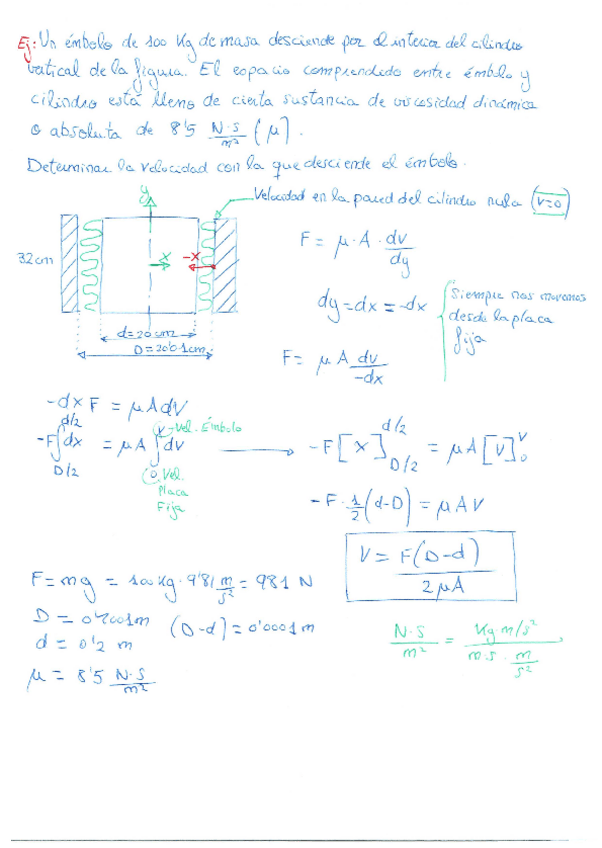 Ej: Un émbolo de 100 Kg de masa desciende por el interior del cilindro
vertical de la figura. El espacio comprendido entre émbolo y
cilindro está lleno de cierta sustancia de viscosidad dinámica
o absoluta de 8'5 N·s/m² (μ).
Determinar la velocidad con la que desciende el émbolo.
y
Velocidad en la pared del cilindro nula (v=0)
32cm
x
-x
d=20cm
D=20'01cm
F = μ·A·dv/dy
dy=dx=-dx
Siempre nos movemos
desde la placa
fija
F = μ A dv/-dx
-dx F = μAdV
-F∫dx = μA∫dv
d/2
D/2
V - Vel. Émbolo
0 Vel.
Placa
Fija
-F[x] d/2 D/2 = μA[V] V 0
-F·1/2(d-D) = μAV
V = F(D-d)/2μA
F=mg = 100Kg·9'81 m/s² = 981 N
D = 0'2001m
d = 0'2 m
(D-d) = 0'0001m
μ = 8'5 N·s/m²
N·s/m² = Kg m/s² / m·s·m/s²